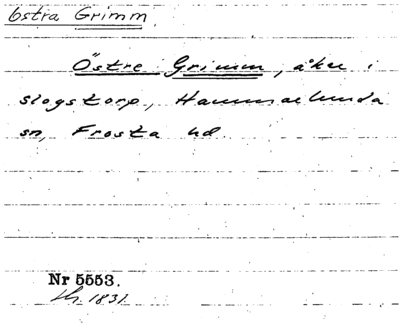 Östra Grimm
Östre Grimm, åker i
slogstorp, Hammarlunda
sn, Frosta hd.
Nr 5553.
1831